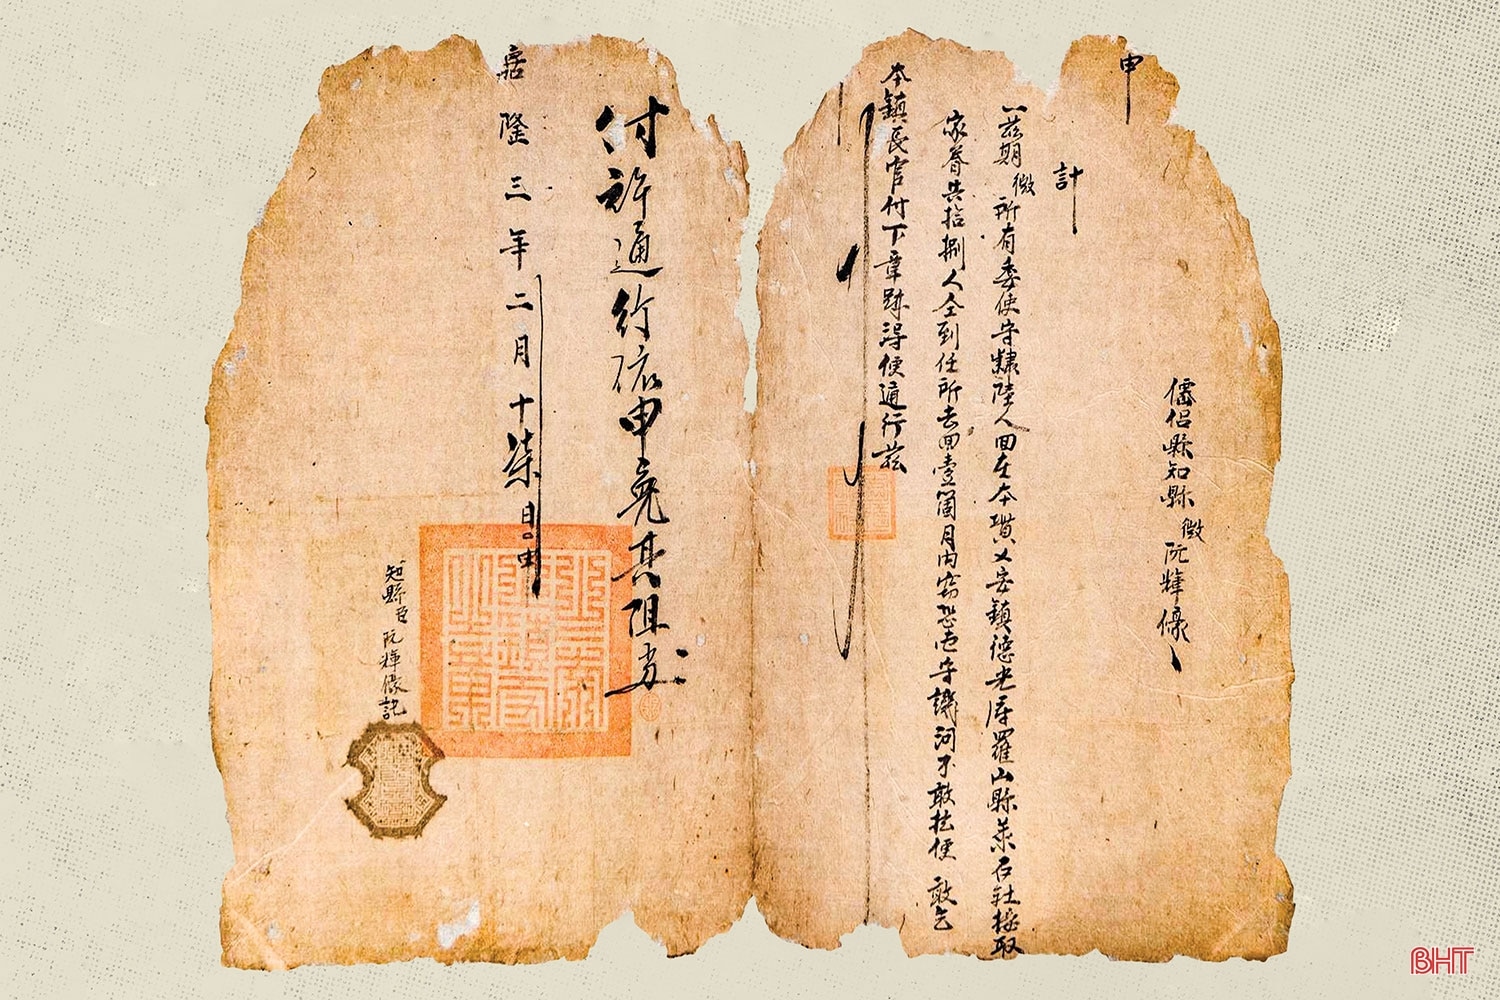 申
僊侶縣知縣微阮輝𠐤
計
一茲期微所有委使守隸陸人回在本貫乂安鎮德光府羅山縣萊石社接取
家眷共拾捌人仝到任所去回壹箇月內窃恐巡守譏河不敢擅便敢乞
本鎮長官付下章跡得便通行茲
付許通行依申免其阻当
嘉隆三年二月十柒日申
知縣臣阮輝𠐤記
BHT